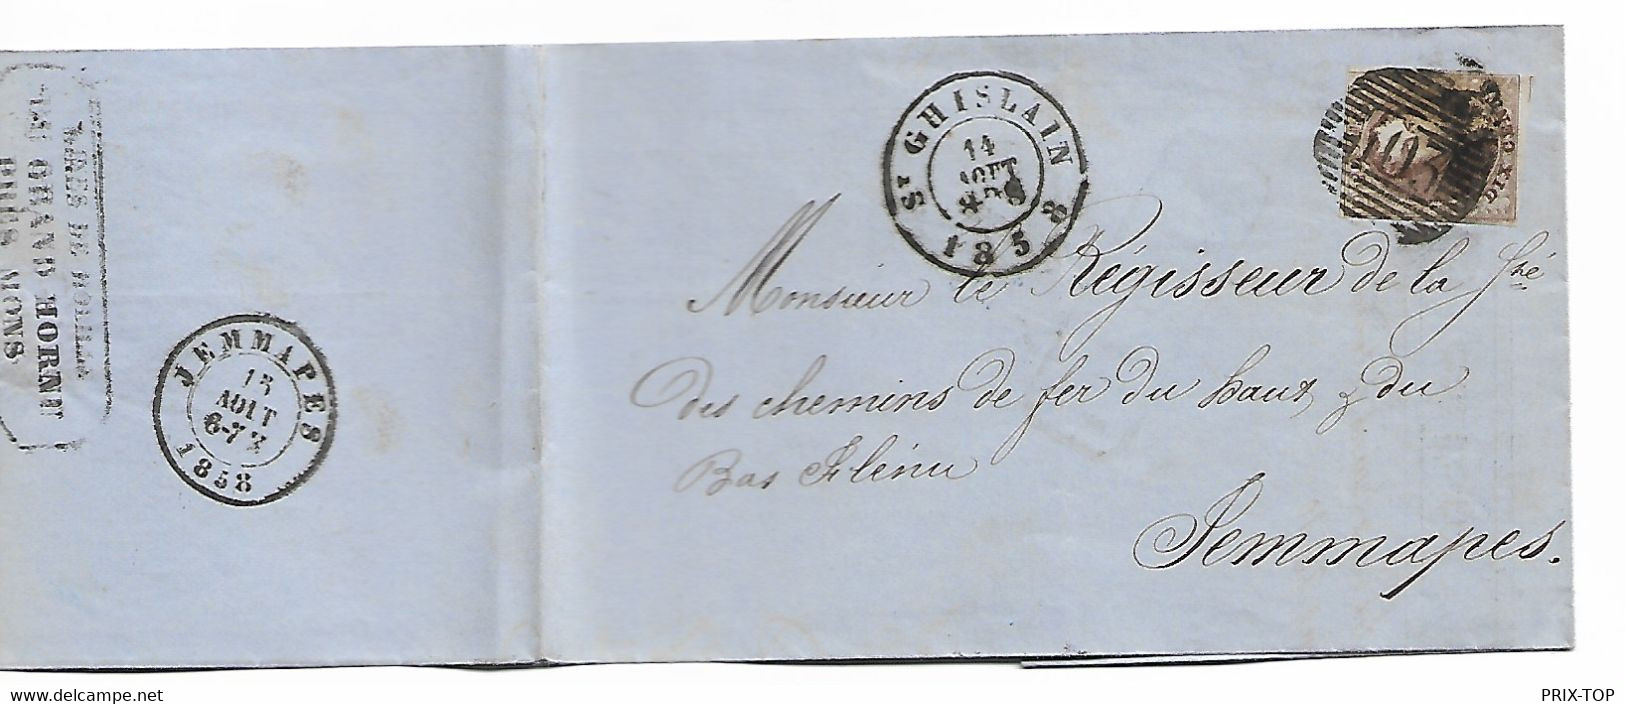 MINES DE HOUILLE
DU GRAND HORNU
PRÈS MONS
JEMMAPES
15
AOUT
6-7
1858
ST GHISLAIN
14
AOUT
1858
103
DIX
Monsieur le Régisseur de la Sté
des chemins de fer du haut & du
Bas Flénu
Jemmapes.
www.delcampe.net
PRIX-TOP